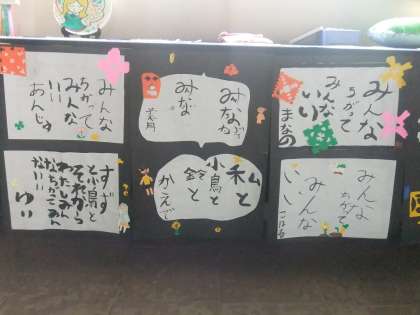 みんな
ちがって
みんな
いい
あんじゅ
みんな
ちがって
みんな
いい
まなの
すず
と小鳥と
それから
わたしみん
なちがってみん
ないい
ゆい
私と
小鳥と
鈴と
かえで
みんな
ちがって
みんな
いい